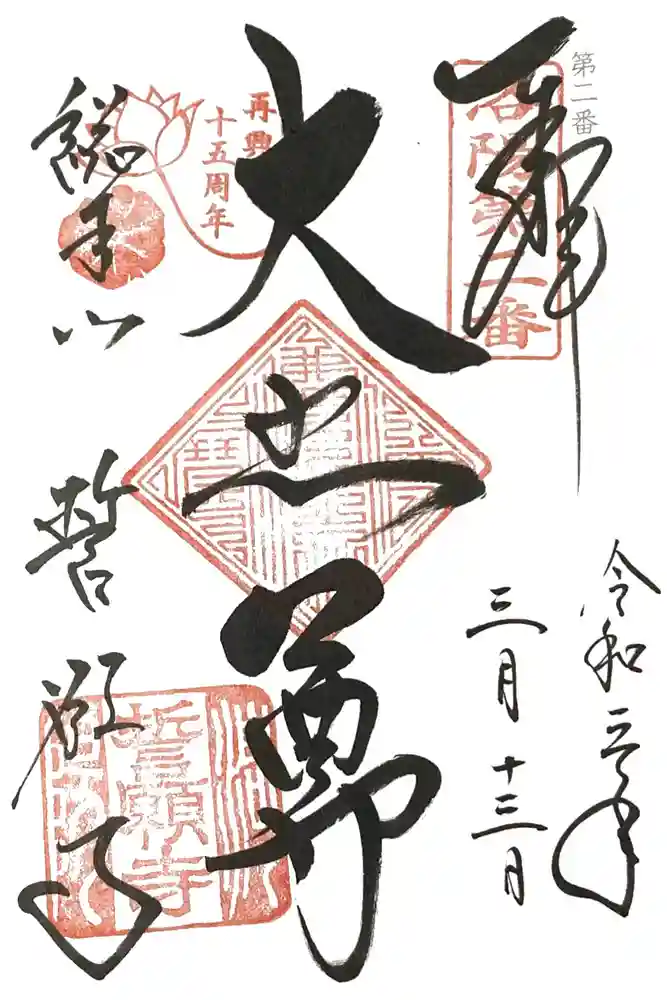 第二番
奉拝
洛陽第二番
令和三年
三月十三日
大悲尊
再興
十五周年
総本山
誓願寺
誓願寺